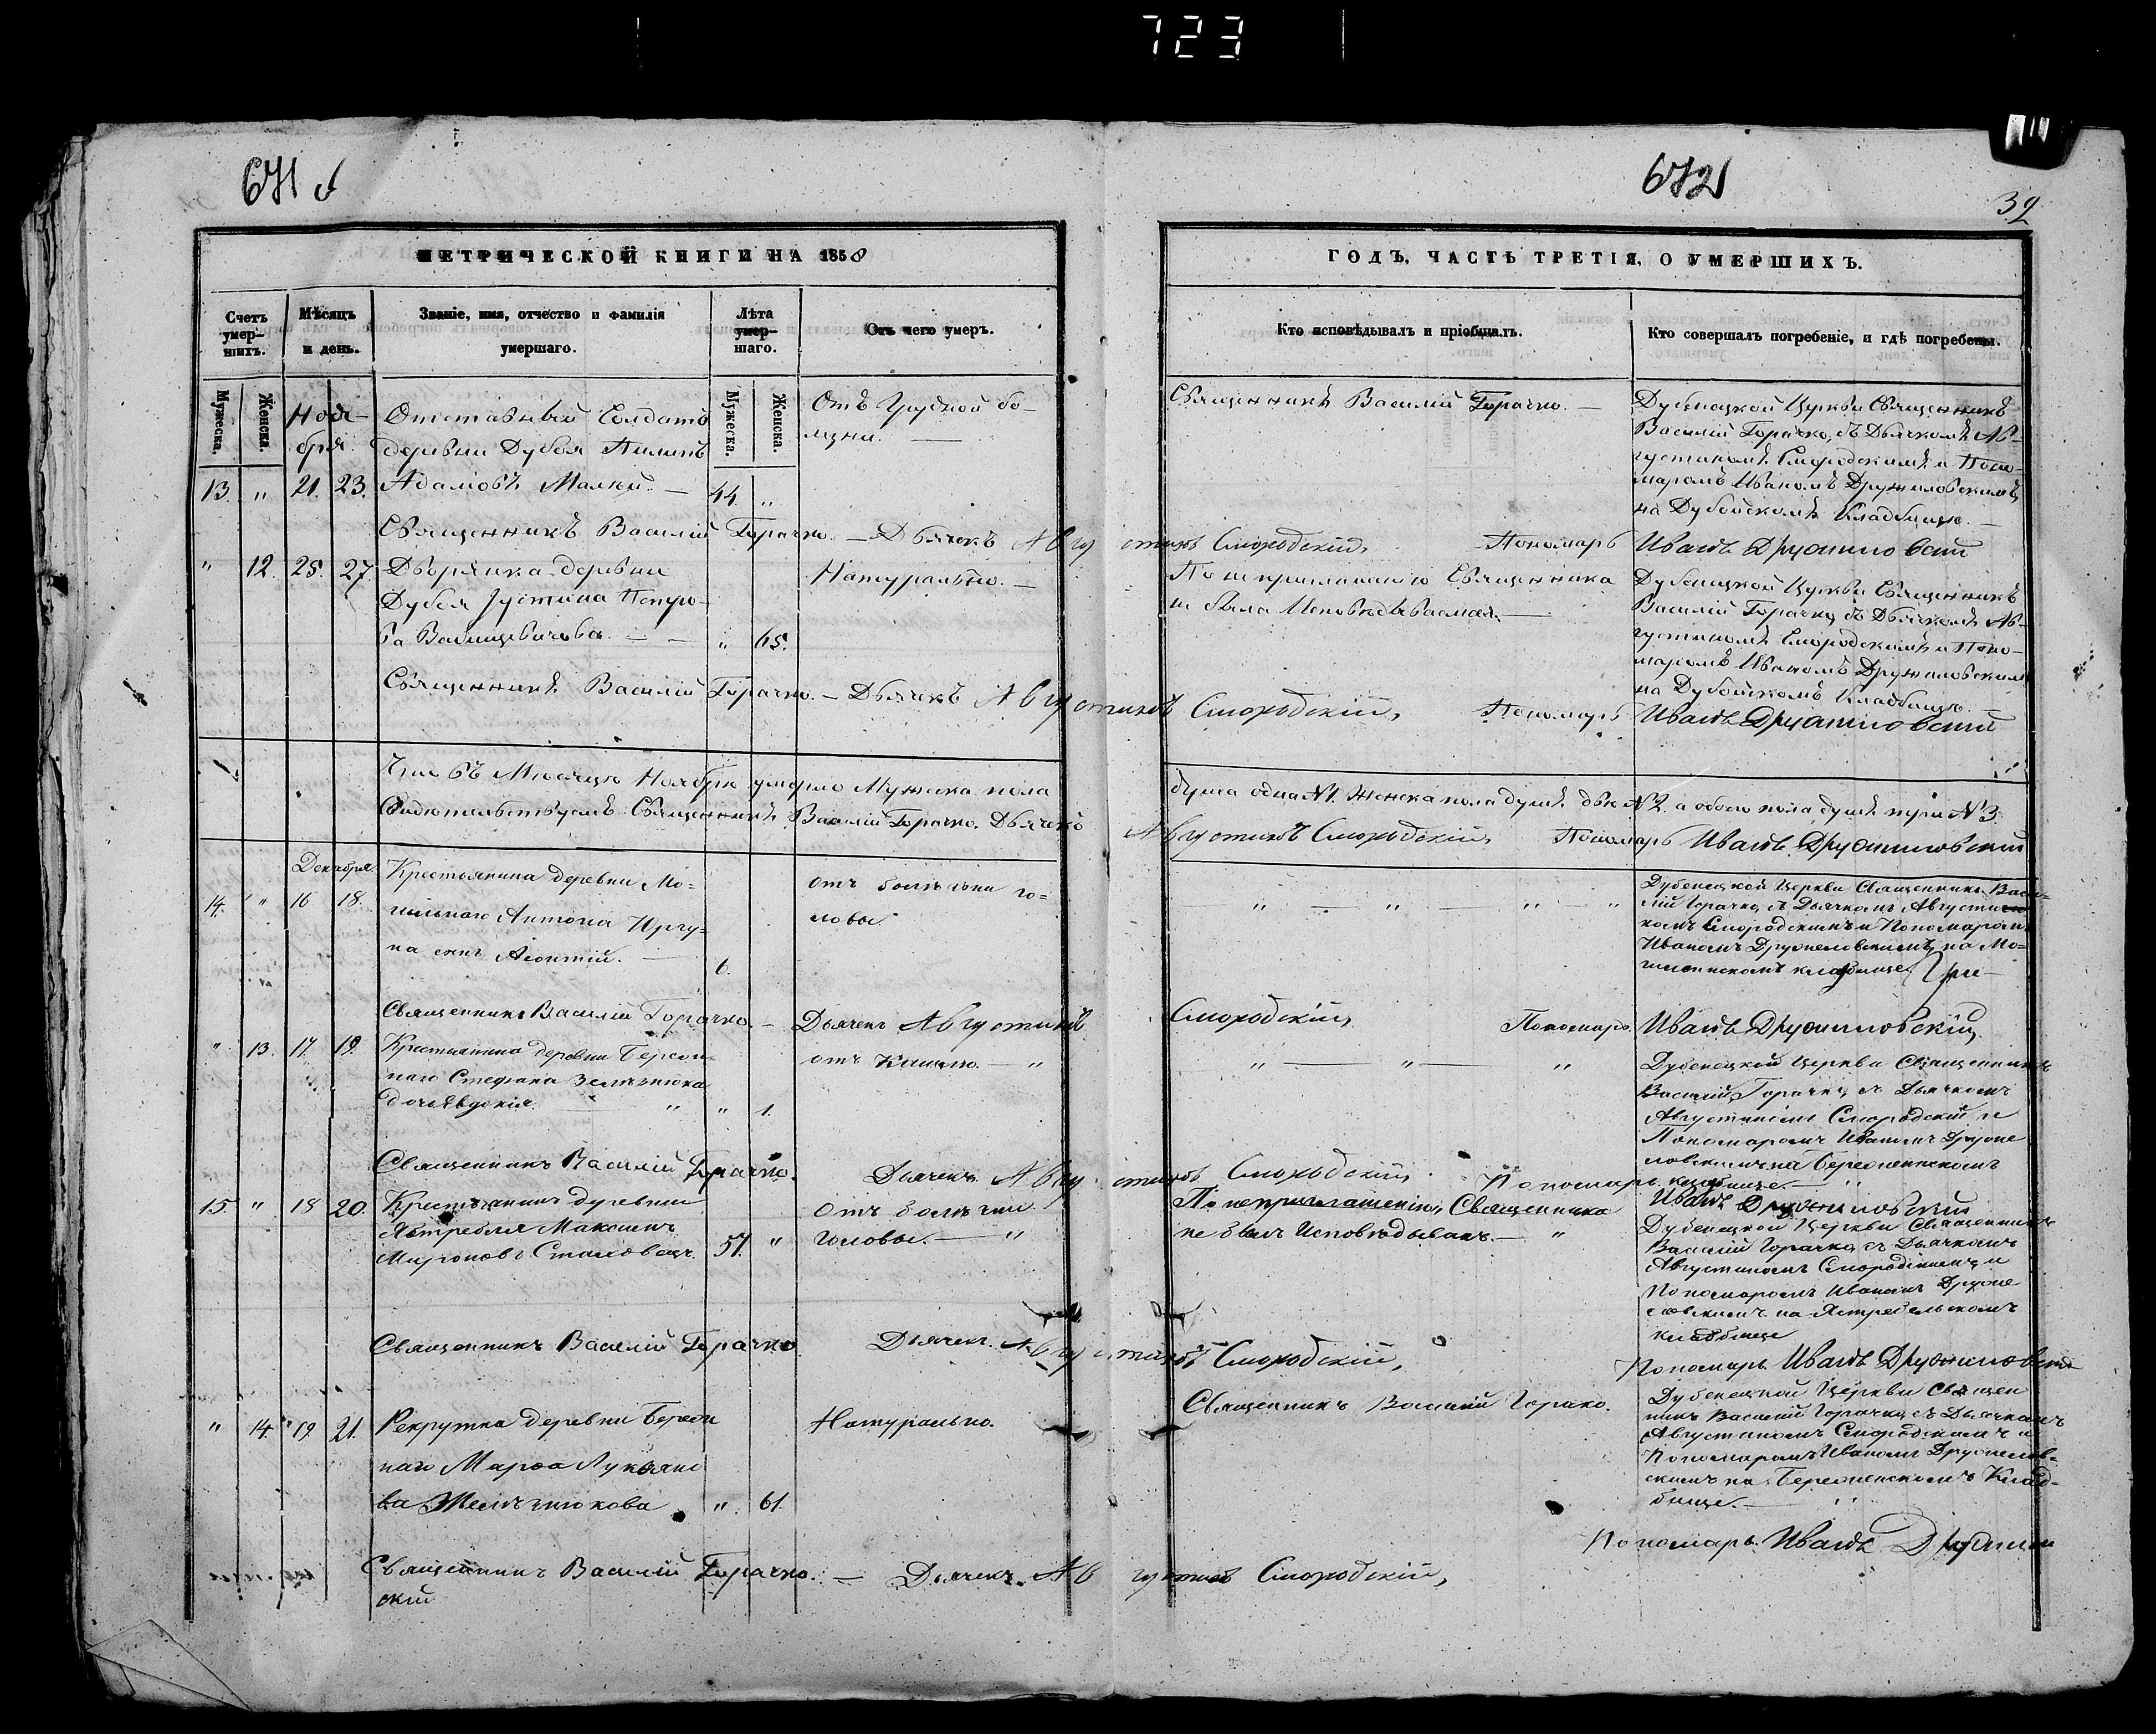 723
671
672
32
МЕТРИЧЕСКОЙ КНИГИ НА 1858
ГОДЪ, ЧАСТЬ ТРЕТІЯ, О УМЕРШИХЪ.
Счетъ умер-
шихъ.
Мѣсяцъ
и день.
Званіе, имя, отчество и фамилія
умершаго.
Лѣта
умер-
шаго.
Отъ чего умеръ.
Кто исповѣдывалъ и пріобщалъ.
Кто совершалъ погребеніе, и гдѣ погребены.
Мужеска.
Женска.
Мужеска.
Женска.
Ноя-
бря
Отставный Солдатъ
деревни Дубоя Филипъ
13. " 21. 23. Адамовъ Малый. — 44. "
Отъ Грудной бо-
лѣзни. —
Священникъ Василій Горачко. —
Дубенецкой Церкви Священникъ
Василій Горачко, съ Дьячкомъ Ав-
густиномъ Смородскимъ и Поно-
маромъ Иваномъ Дружиловскимъ,
на Дубойскомъ Кладбищѣ. —
Священникъ Василій Горачко. — Дьячекъ Августинъ Смородскій, Пономарь Иванъ Дружиловскій
" 12. 25. 27. Дворянка деревни
Дубоя Іустина Петро-
ва — " 65.
Натурально. —
По неприглашенію Священника
не была Исповѣдываема. —
Дубенецкой Церкви Священникъ
Василій Горачко, съ Дьячкомъ Ав-
густиномъ Смородскимъ и Поно-
маромъ Иваномъ Дружиловскимъ
на Дубойскомъ Кладбищѣ. —
Священникъ Василій Горачко. — Дьячекъ Августинъ Смородскій, Пономарь Иванъ Дружиловскій
въ Мѣсяцѣ Ноябрѣ умерло Мужеска пола
душа одна №1. Женска пола душъ двѣ №2. а обоего пола душъ три №3.
Священникъ Василій Горачко. Дьячекъ
Августинъ Смородскій, Пономарь Иванъ Дружиловскій
Декабря
Крестьянина деревни Мо-
14. " 16 18. гильнаго Антона
сынъ Леонтій. — 6.
отъ болѣзни го-
ловы.
" — " — " — "
Дубенецкой Церкви Священникъ Васи-
лій Горачко, съ Дьячкомъ Августи-
номъ Смородскимъ и Пономаромъ
Иваномъ Дружиловскимъ, на Мо-
кладбище.
Священникъ Василій Горачко. — Дьячекъ Августинъ Смородскій, Пономарь Иванъ Дружиловскій,
" 13. 17. 19. Крестьянина деревни Берез-
наго Стефана
дочь Евдокія. " " 1.
отъ Кашлю. — "
" — " — "
Дубенецкой Церкви Священникъ
Василій Горачко, съ Дьячкомъ
Августиномъ Смородскій и
Пономаромъ Иваномъ Друже
ловскимъ на
кладбище. — "
Священникъ Василій Горачко. Дьячекъ Августинъ Смородскій Пономарь
Иванъ Дружиловскій
15 " 18 20. Крестьянинъ деревни
Ястребля Максимъ
Мироновъ 57. "
отъ болѣзни
головы. — "
По неприглашенію Священника
не былъ Исповѣдыванъ. — "
Дубенецкой Церкви Священникъ
Василій Горачко, съ Дьячкомъ
Августиномъ Смородскимъ и
Пономаромъ Иваномъ Друже
ловскимъ на Ястребельскомъ
кладбище
Священникъ Василій Горачко Дьячекъ. Августинъ Смородскій,
Пономарь Иванъ Дружиловскій
" 14. 19. 21. Рекрутка деревни Берез
наго Марѳа Лукьяно
ва " 61.
Натурально.
Священникъ Василій Горачко.
Дубенецкой Церкви Священ
никъ Василій Горачко, съ Дьячкомъ
Августиномъ Смородскимъ и
Пономаромъ Иваномъ Дружилов-
скимъ на Клад-
бище. —
Пономарь. Иванъ Дружилов
Священникъ Василій Горачко. — Дьячекъ. Августинъ Смородскій,
скій